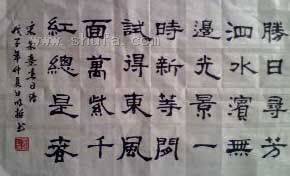 勝日尋芳
泗水濱無
邊光景一
時新等閒
試得東風
面萬紫千
紅總是春
宋朱熹春日诗
戊子年仲夏